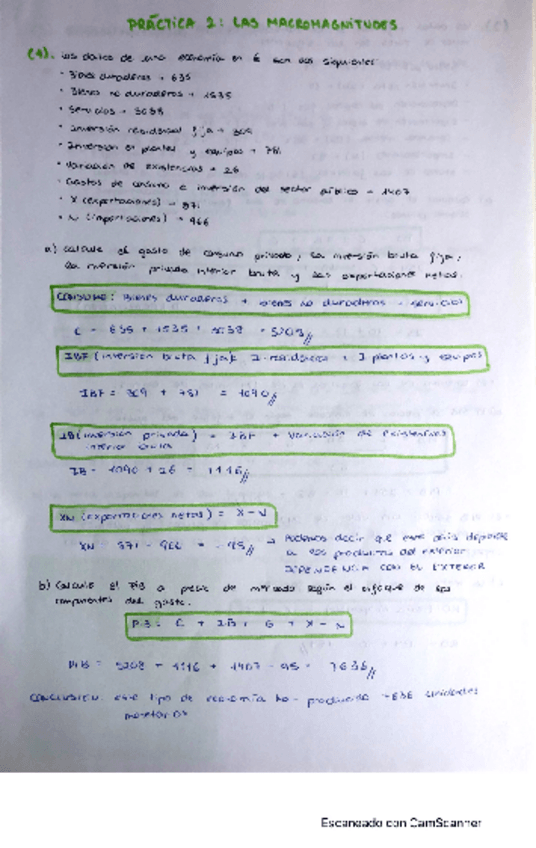 PRÁCTICA 2: LAS MACROMAGNITUDES
(1). Los datos de una economía en € son los siguientes:
· Bienes duraderos → 635
· Bienes no duraderos → 1535
· Servicios → 3038
· Inversión residencial fija → 309
· Inversión en plantas y equipos → 781
· Variación de existencias → 26
· Gastos de consumo e inversión del sector público → 1407
· X (exportaciones) → 871
· N (importaciones) → 966
a) Calcule el gasto de consumo privado, la inversión bruta fija,
la inversión privada interior bruta y las exportaciones netas.
CONSUMO: Bienes duraderos + bienes no duraderos + servicios
C = 635 + 1535 + 3038 = 5208//
IBF (inversión bruta fija): I residencial + I plantas y equipos
IBF = 309 + 781 = 1090//
IB (inversión privada) = IBF + Variación de existencias
interior bruta
IB = 1090 + 26 = 1116//
XN (exportaciones netas) = X - N
XN = 871 - 966 = -95// → Podemos decir que este país depende
a los productos del exterior
DEPENDENCIA CON EL EXTERIOR
b) Calcule el PIB a precio de mercado según el enfoque de los
componentes del gasto.
PIB = C + IB + G + X - N
PIB = 5208 + 1116 + 1407 - 95 = 7636//
CONCLUSIÓN: este tipo de economía ha producido 7636 unidades
monetarias
Escaneado con CamScanner